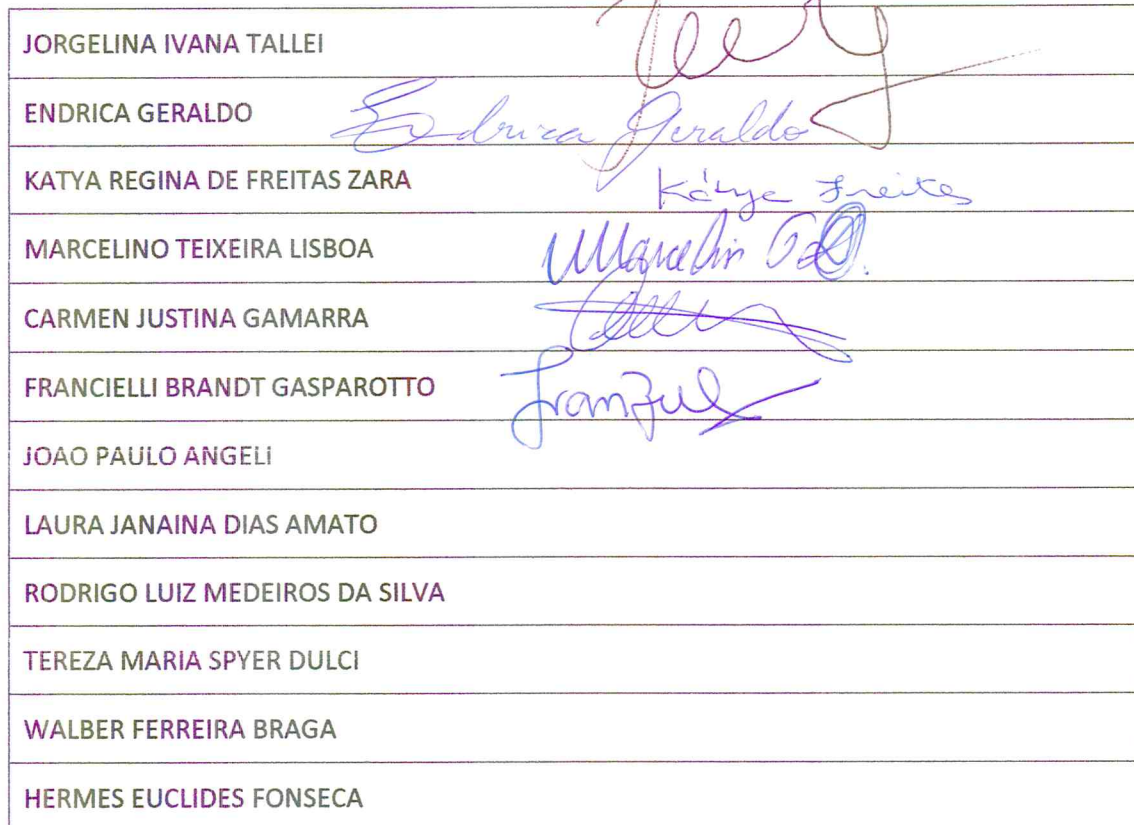 JORGELINA IVANA TALLEI
ENDRICA GERALDO Endrica Geraldo
KATYA REGINA DE FREITAS ZARA Kátya Freitas
MARCELINO TEIXEIRA LISBOA
CARMEN JUSTINA GAMARRA
FRANCIELLI BRANDT GASPAROTTO
JOAO PAULO ANGELI
LAURA JANAINA DIAS AMATO
RODRIGO LUIZ MEDEIROS DA SILVA
TEREZA MARIA SPYER DULCI
WALBER FERREIRA BRAGA
HERMES EUCLIDES FONSECA